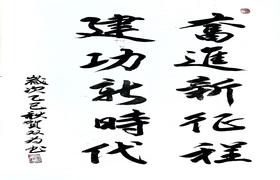 奮進新征程
建功新時代
歲次乙巳秋賀双为书